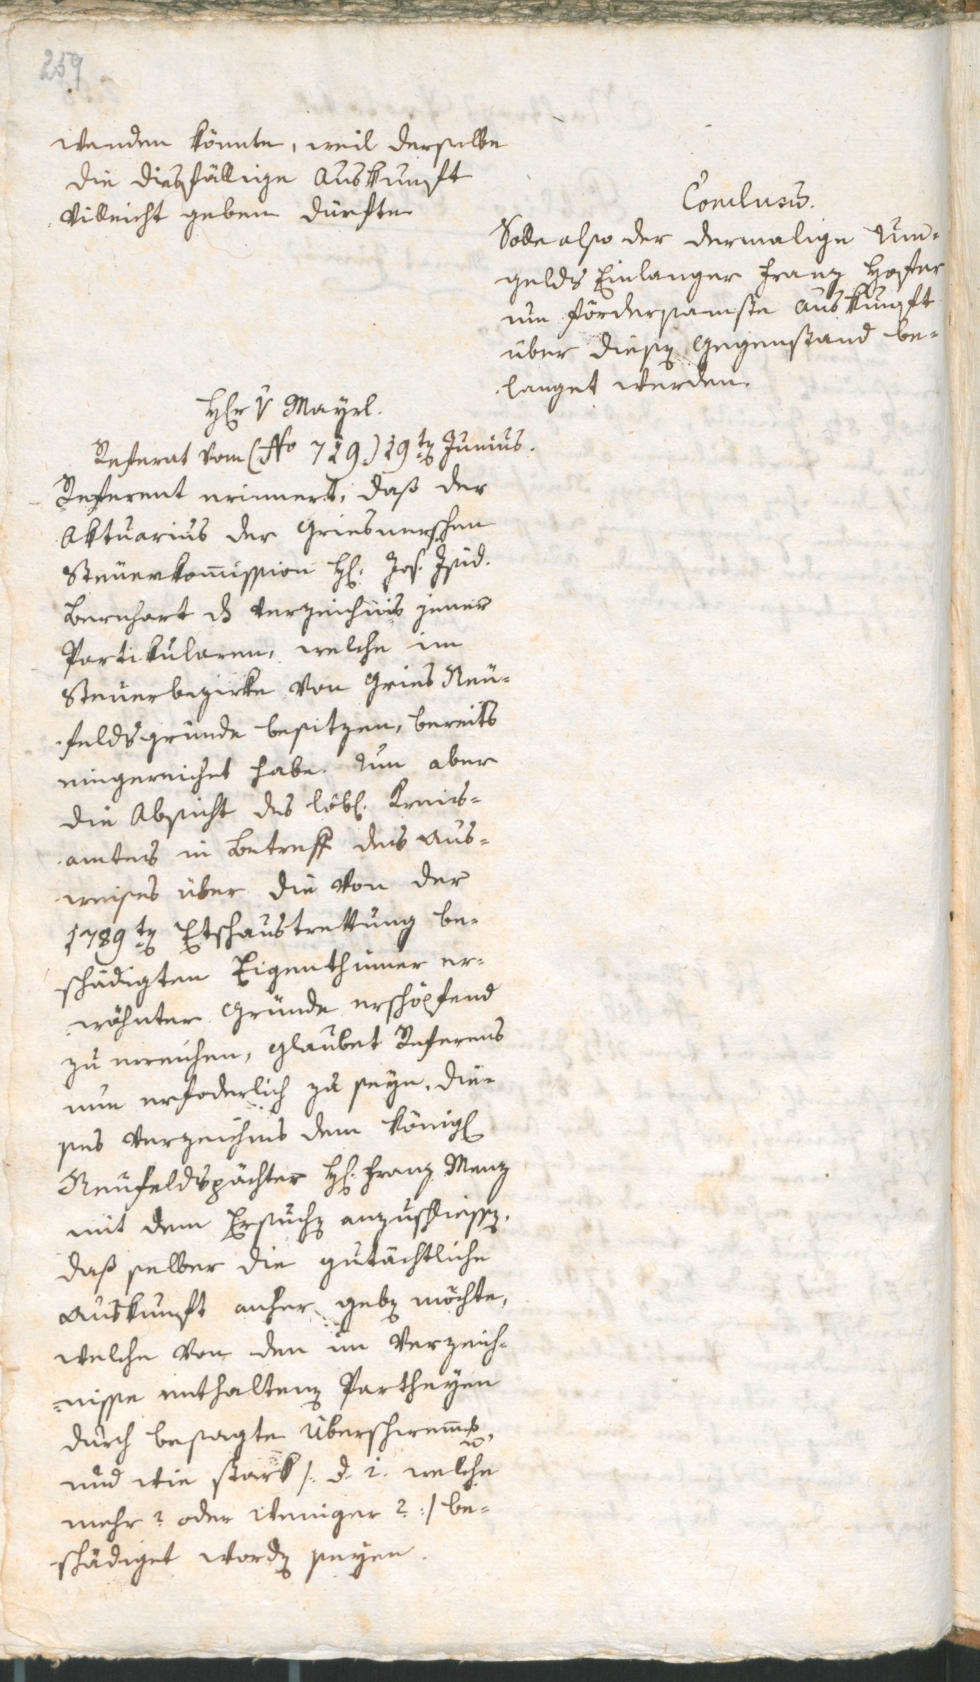 259
wenden könnte, weil derselbe
die diesfällige Auskunft
villeicht geben dürfte.
Conclusū.
Solle also der dermalige Um-
gelds Einlanger Franz Hofer
um fördersamste Auskunft
über diesen Gegenstand be-
langet werden.
Hr v Mayrl.
Referat vom (No 719.) 19ten Junius.
Referent erinnert, daß der
Aktuarius der Griesnerschen
Steuerkom̄ission H: Jos. Isid.
Bernhart ds Verzeichnis jener
Partikularen, welche im
Steuerbezirke von Gries Neu-
feldsgründe besitzen, bereits
eingereichet habe. Um aber
die Absicht des löbl. Kreis-
amtes in Betreff des Aus-
weises über die von der
1789ten Etschaustrettung be-
schädigten Eigenthümer er-
wähnter Gründe erschöpfend
zu erreichen, glaubet Referens
nun erfoderlich zu seyn, die-
ses Verzeichnis dem königl
Neufeldspächter H: Franz Menz
mit dem Ersuchen anzuschliessen,
daß selber die gutächtliche
Auskunft anher geben möchte,
welche von den im Verzeich-
nisse enthaltenen Partheyen
durch besagte Überschwem̄ung,
und wie stark /: d. i. welche
mehr? oder weniger? :/ be-
schädiget worden seyen.